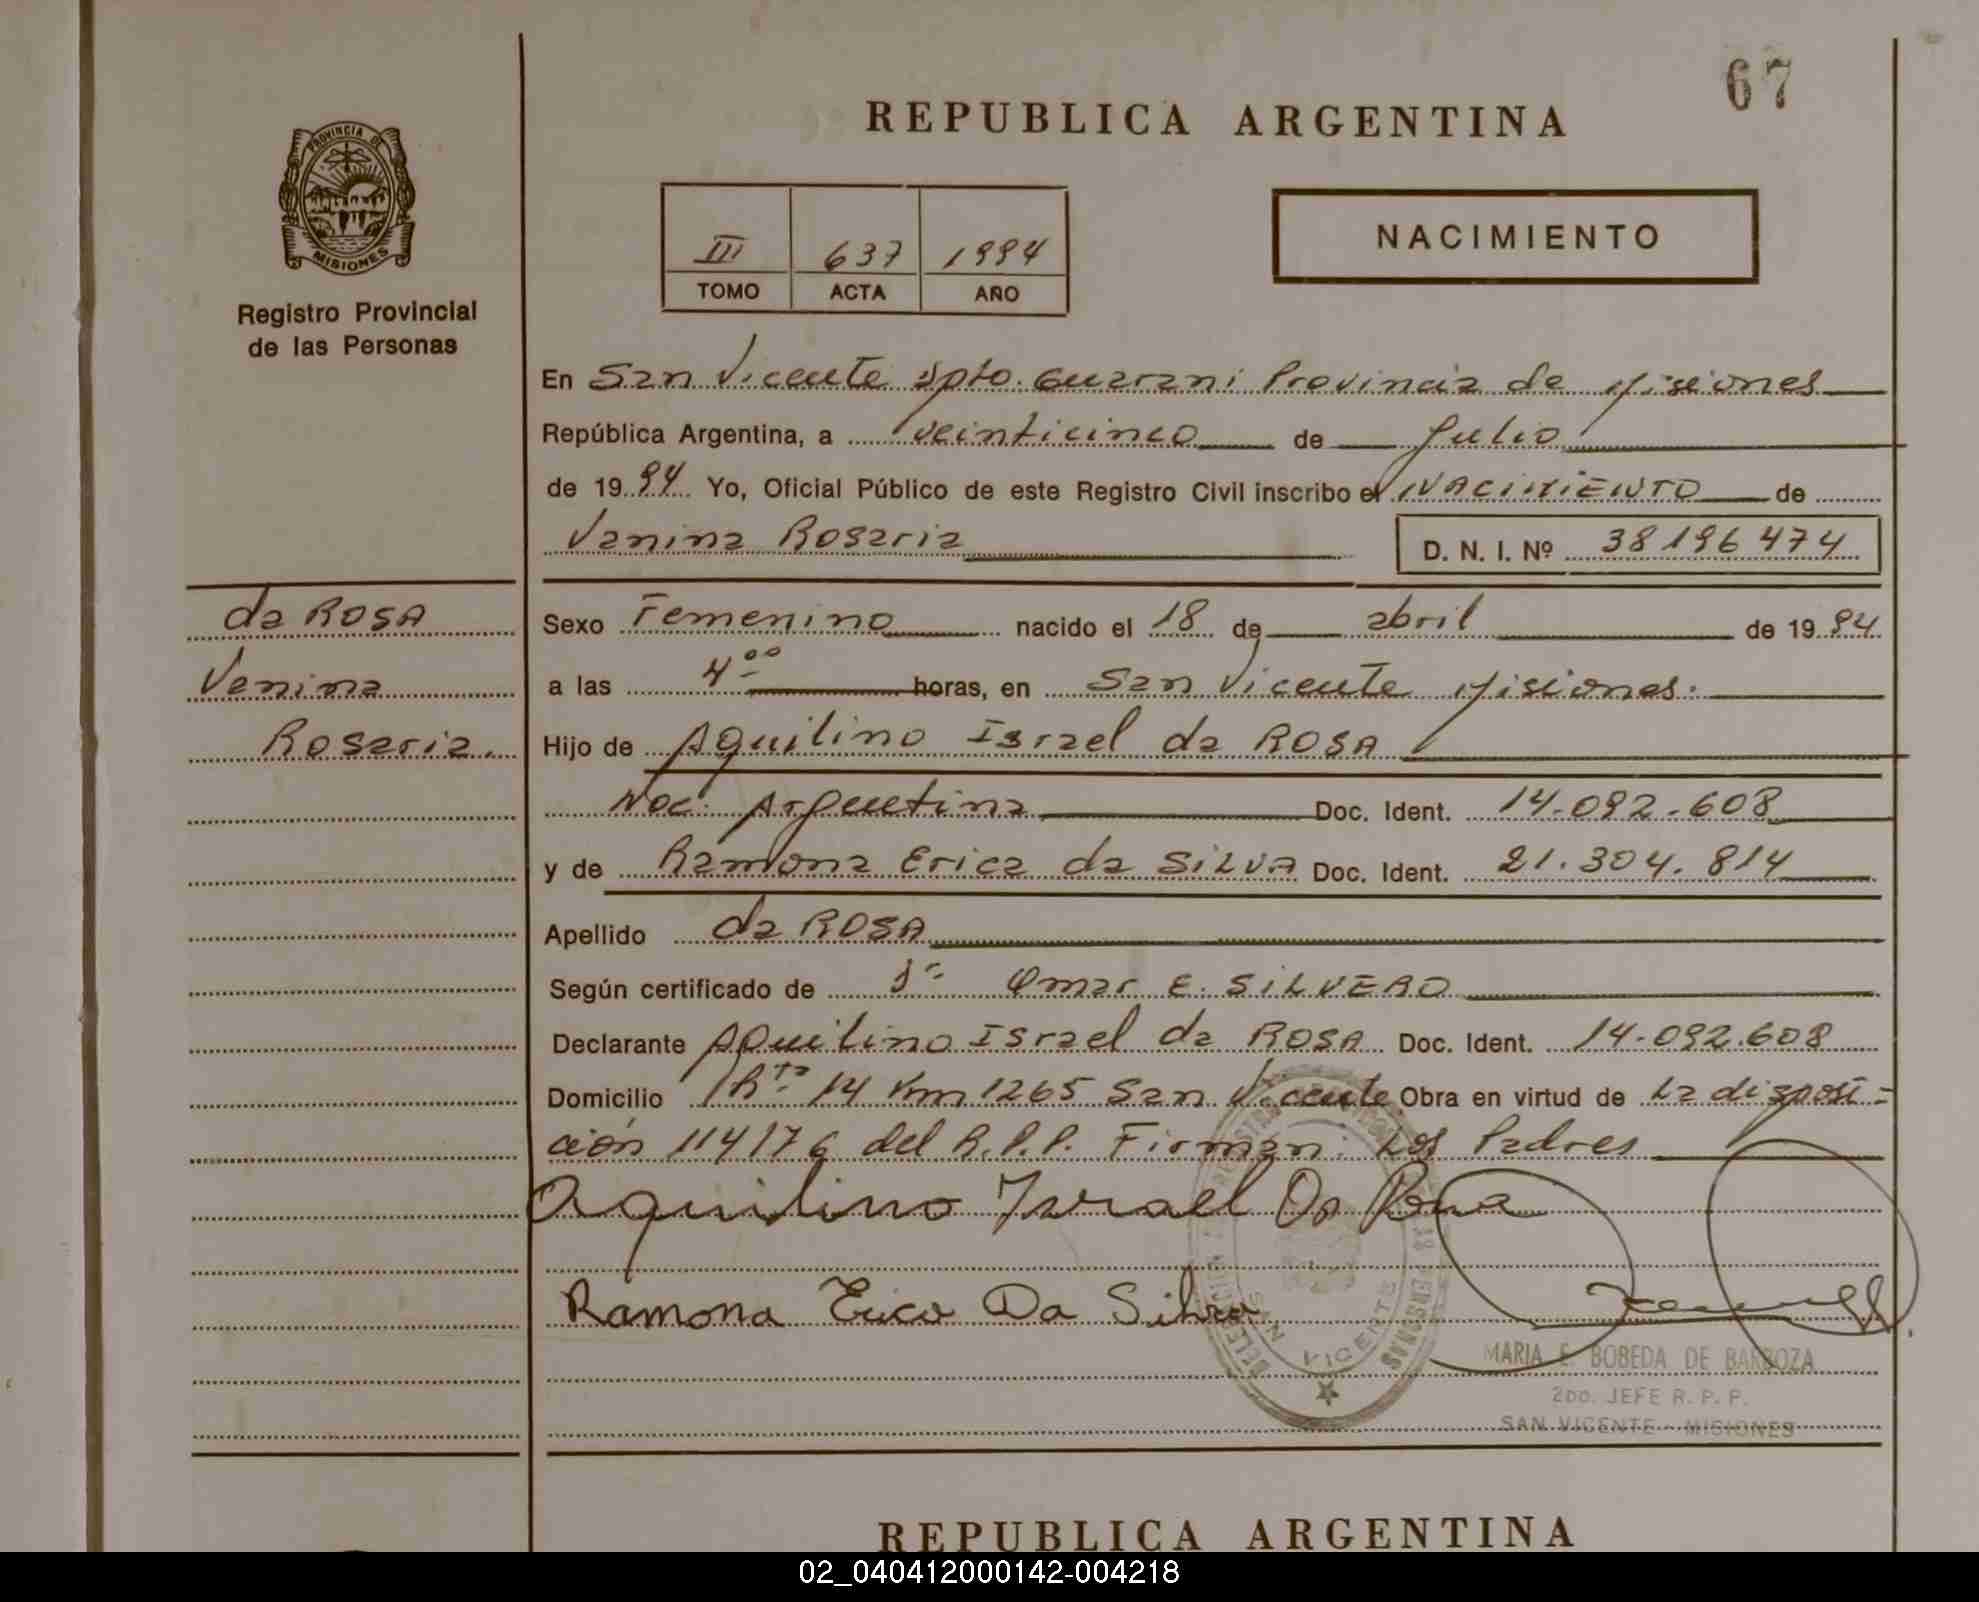 67
REPUBLICA ARGENTINA
PROVINCIA DE
MISIONES
Registro Provincial
de las Personas
III 637 1994
TOMO ACTA AÑO
NACIMIENTO
En San Vicente Dpto. Guarani Provincia de Misiones
República Argentina, a veinticinco de Julio
de 1994 Yo, Oficial Público de este Registro Civil inscribo el NACIMIENTO de
Vanina Rosaria D. N. I. Nº 38196474
da ROSA
Vanina
Rosaria.
Sexo Femenino nacido el 18 de abril de 1994
a las 4ºº horas, en San Vicente Misiones.
Hijo de Aquilino Israel da ROSA
Nac: Argentina Doc. Ident. 14.092.608
y de Ramona Erica da SILVA Doc. Ident. 21.304.814
Apellido da ROSA
Según certificado de Omar E. SILVERO
Declarante Aquilino Israel da ROSA Doc. Ident. 14.092.608
Domicilio Rta 14 Km 1265 San Vicente Obra en virtud de La disposi-
ción 114/76 del R.P.P. Firman: Los Padres
Aquilino Israel Da Rosa
Ramona Erica Da Silva
SAN VICENTE
MARIA E. BOBEDA DE BARBOZA
2DO. JEFE R. P. P.
SAN VICENTE - MISIONES
REPUBLICA ARGENTINA
02_040412000142-004218